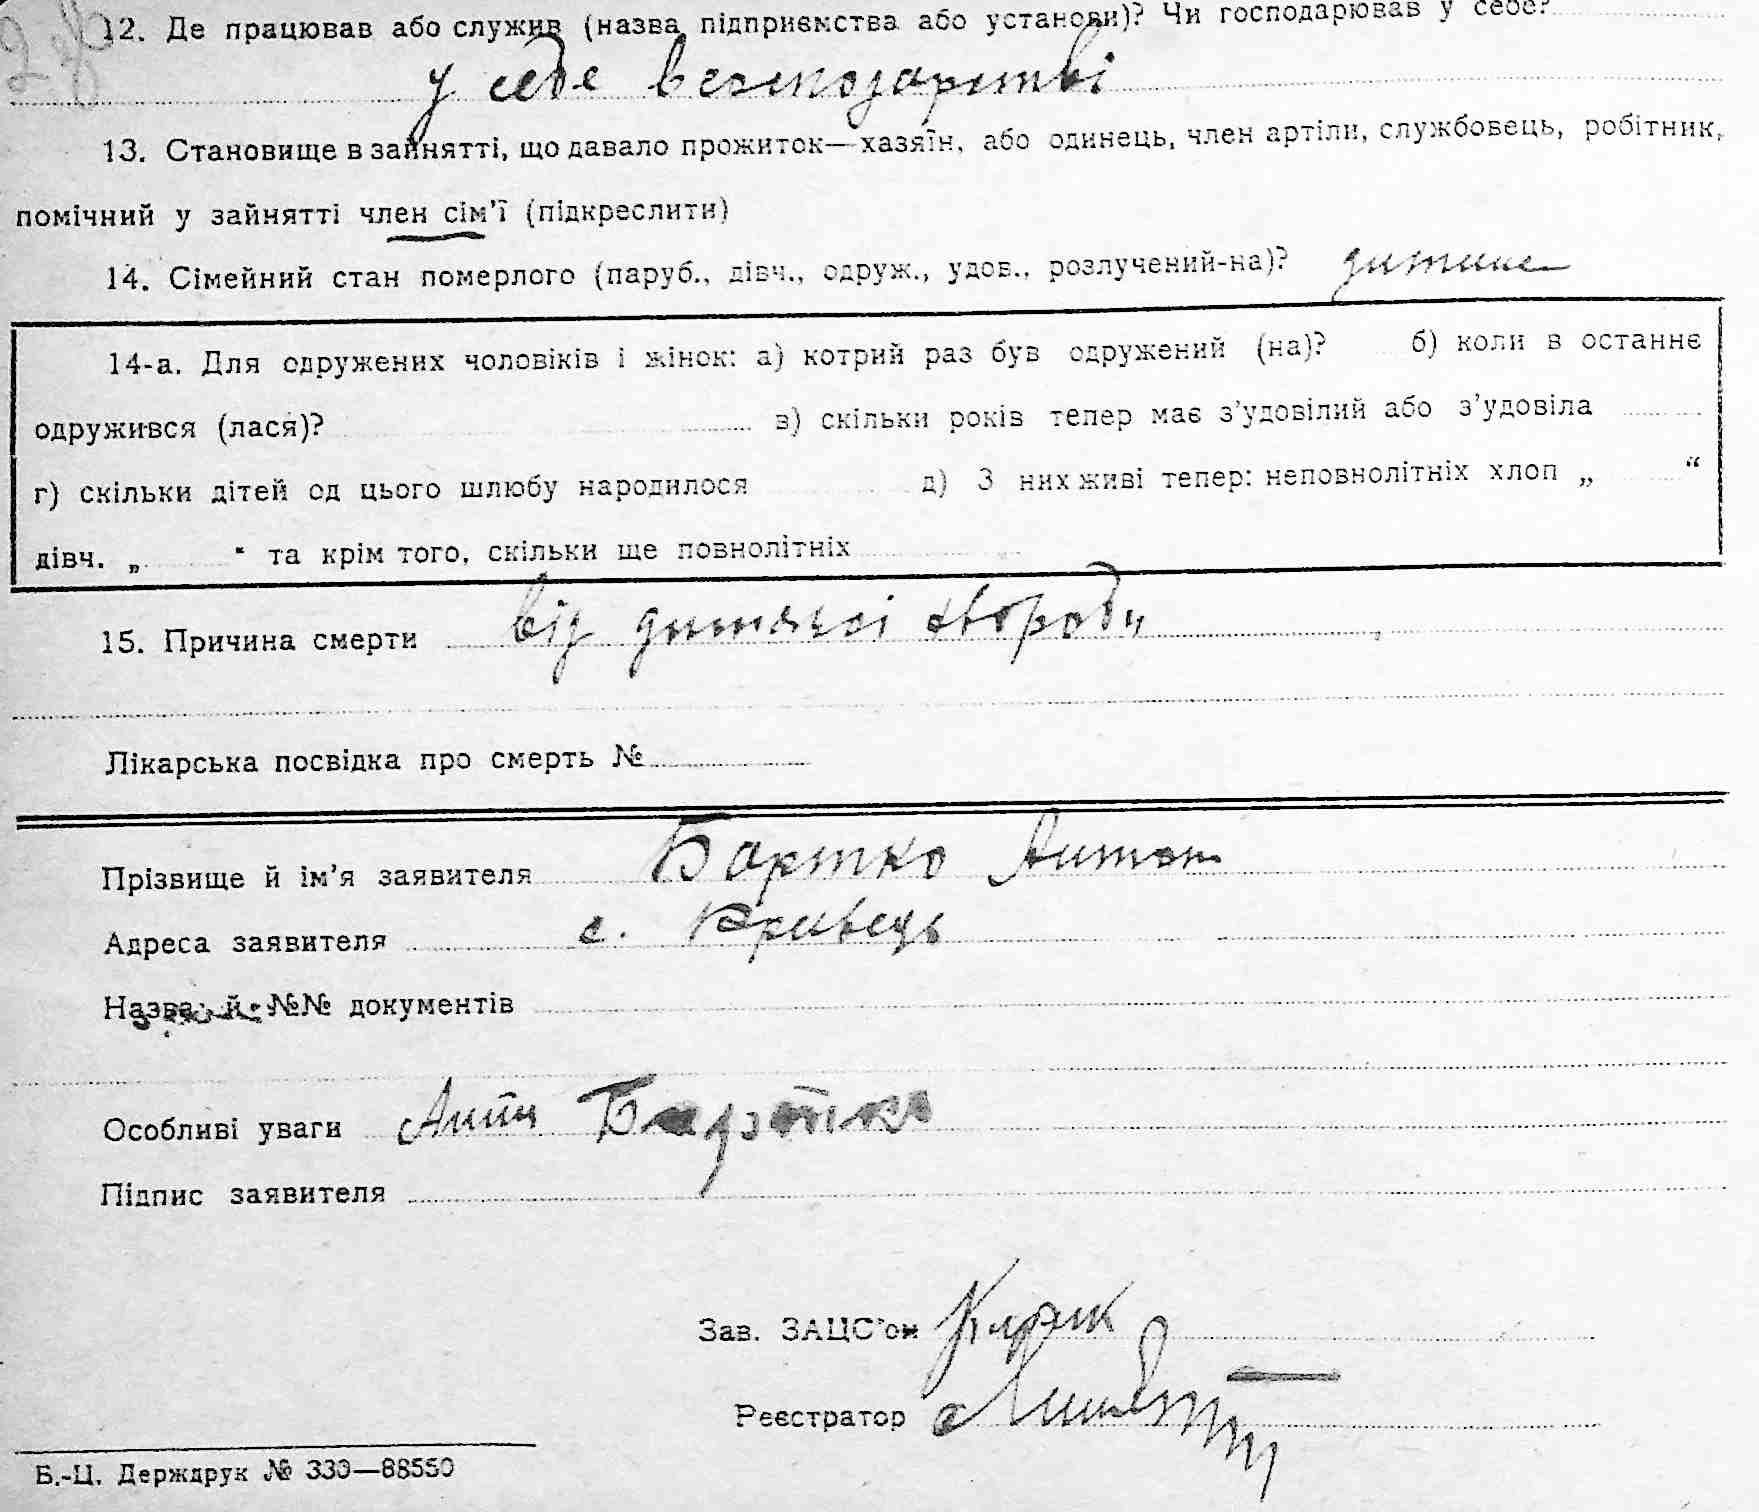 12. Де працював або служив (назва підприємства або установи)? Чи господарював у себе?
у себе в господарстві
13. Становище в зайнятті, що давало прожиток—хазяїн, або одинець, член артіли, службовець, робітник,
помічний у зайнятті член сім'ї (підкреслити)
14. Сімейний стан померлого (паруб., дівч., одруж., удов., розлучений-на)? дитина
14-а. Для одружених чоловіків і жінок: а) котрий раз був одружений (на)? б) коли в останнє
одружився (лася)? в) скільки років тепер має з'удовілий або з'удовіла
г) скільки дітей од цього шлюбу народилося д) З них живі тепер: неповнолітніх хлоп „ “
дівч. „ “ та крім того, скільки ще повнолітніх
15. Причина смерти від дитячої хвороби
Лікарська посвідка про смерть №
Прізвище й ім'я заявителя Бартко Антон
Адреса заявителя с. Кривець
Назва й №№ документів
Особливі уваги Антін Бартко
Підпис заявителя
Зав. ЗАЦС'ом
Реєстратор
Б.-Ц. Держдрук № 339—88550